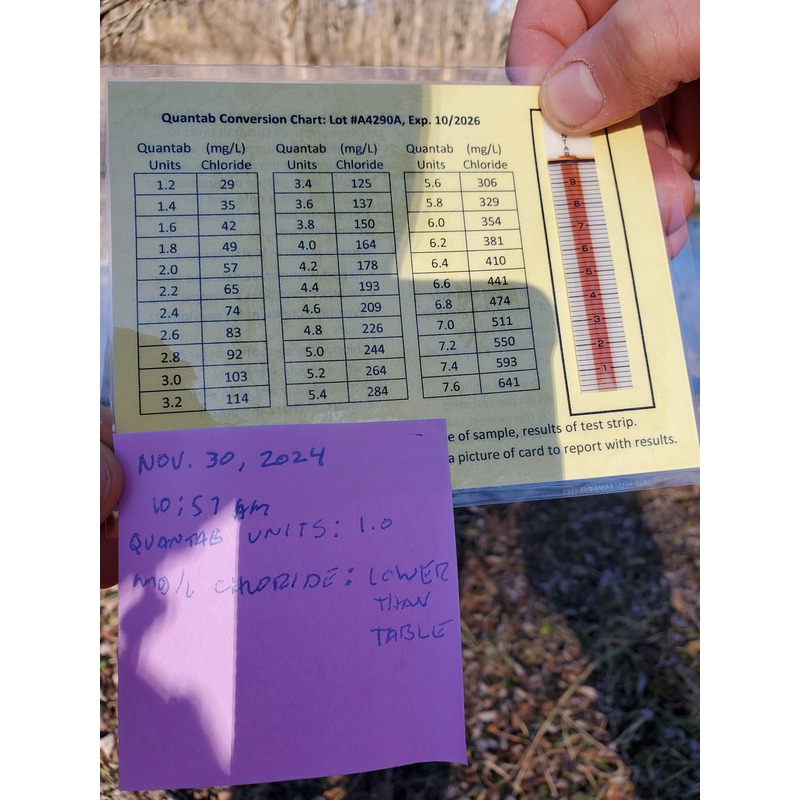 Quantab Conversion Chart: Lot #A4290A, Exp. 10/2026
Quantab (mg/L) Quantab (mg/L) Quantab (mg/L)
Units Chloride Units Chloride Units Chloride
1.2 29 3.4 125 5.6 306
1.4 35 3.6 137 5.8 329
1.6 42 3.8 150 6.0 354
1.8 49 4.0 164 6.2 381
2.0 57 4.2 178 6.4 410
2.2 65 4.4 193 6.6 441
2.4 74 4.6 209 6.8 474
2.6 83 4.8 226 7.0 511
2.8 92 5.0 244 7.2 550
3.0 103 5.2 264 7.4 593
3.2 114 5.4 284 7.6 641
N
T
A
B
9
8
7
6
5
4
3
2
1
e of sample, results of test strip.
a picture of card to report with results.
NOV. 30, 2024
10:57 AM
QUANTAB UNITS: 1.0
MG/L CHLORIDE: LOWER
THAN
TABLE